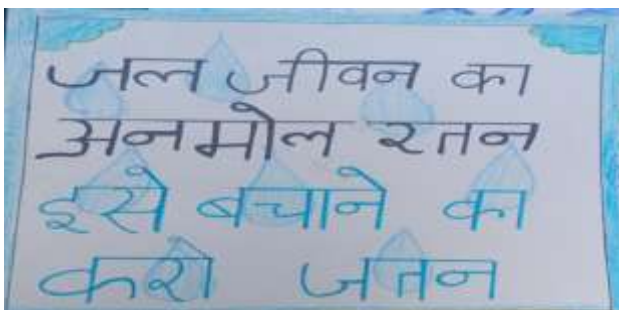 जल जीवन का
अनमोल रतन
इसे बचाने का
करो जतन